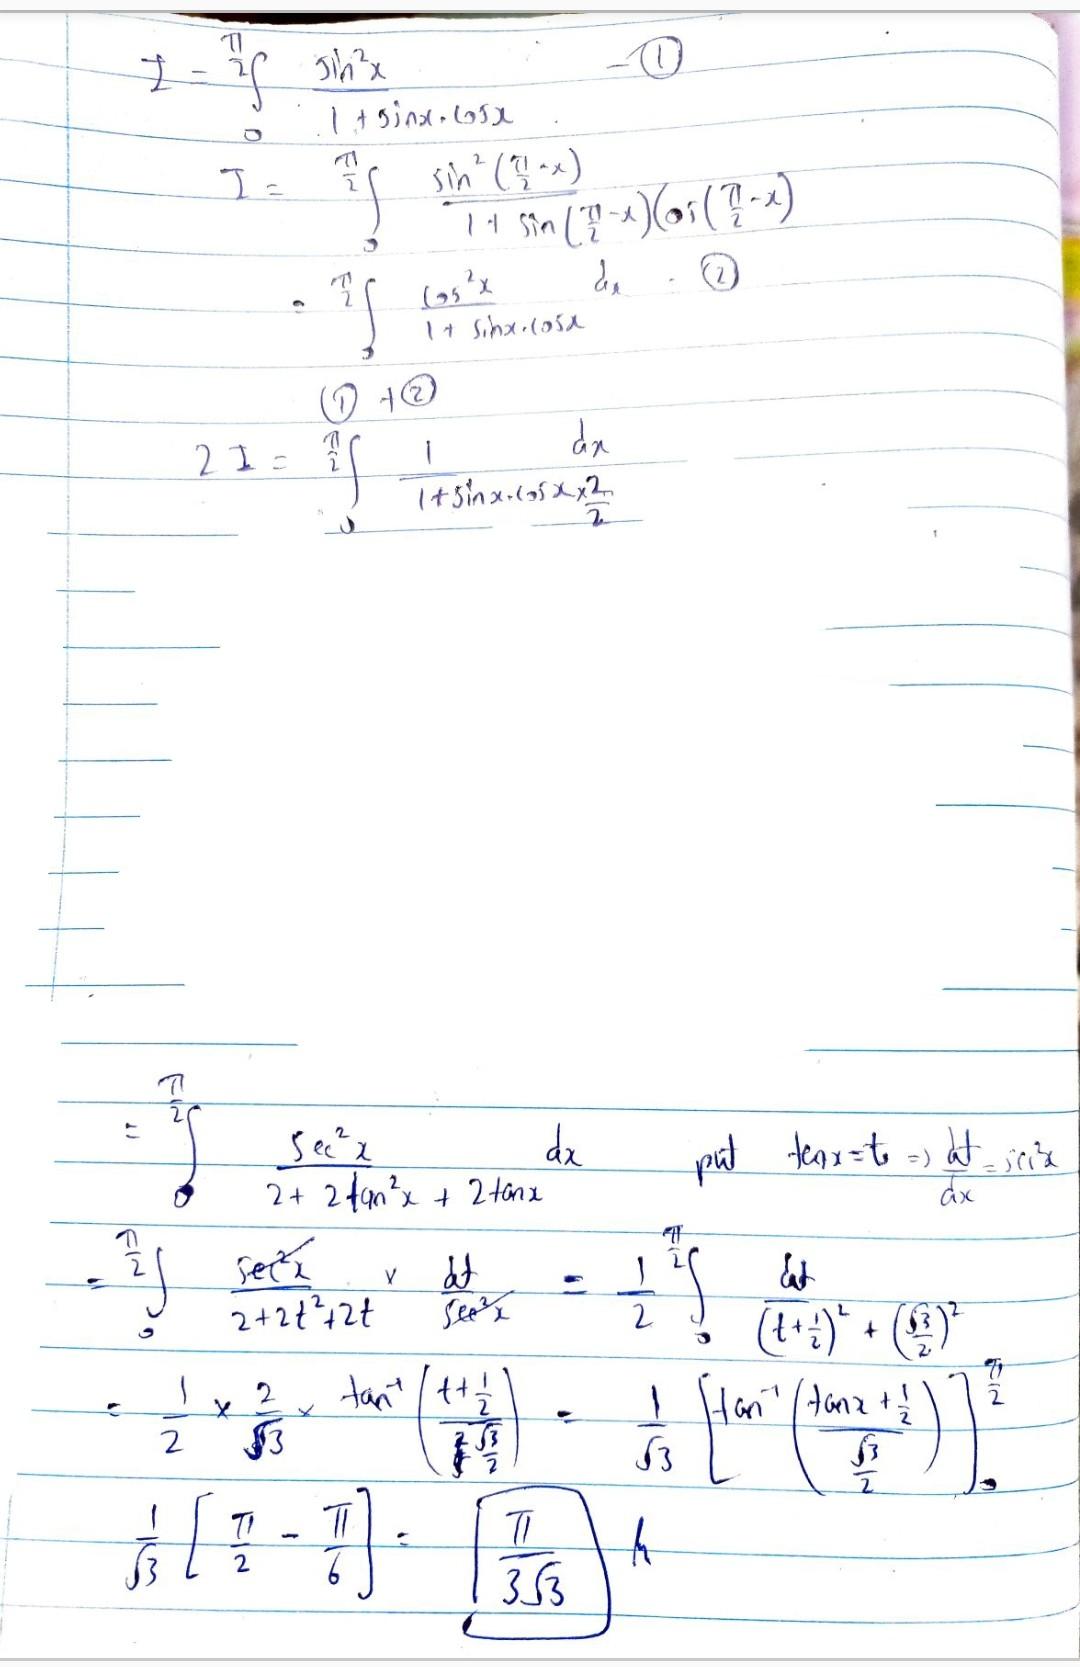 I = ∫₀^(π/2) sin²x / (1 + sinx.cosx) - ①
I = ∫₀^(π/2) sin²(π/2 - x) / (1 + sin(π/2 - x)cos(π/2 - x))
= ∫₀^(π/2) cos²x / (1 + sinx.cosx) dx - ②
① + ②
2I = ∫₀^(π/2) 1 / (1 + sinx.cosx × 2/2) dx
= ∫₀^(π/2) sec²x / (2 + 2tan²x + 2tanx) dx put tanx = t ⇒ dt/dx = sec²x
= ∫₀^(π/2) sec²x / (2 + 2t² + 2t) × dt / sec²x = 1/2 ∫₀^(π/2) dt / ((t + 1/2)² + (√3/2)²)
= 1/2 × 2/√3 × tan⁻¹((t + 1/2) / (√3/2)) = 1/√3 [tan⁻¹((tanx + 1/2) / (√3/2))]₀^(π/2)
1/√3 [π/2 - π/6] = π/(3√3)